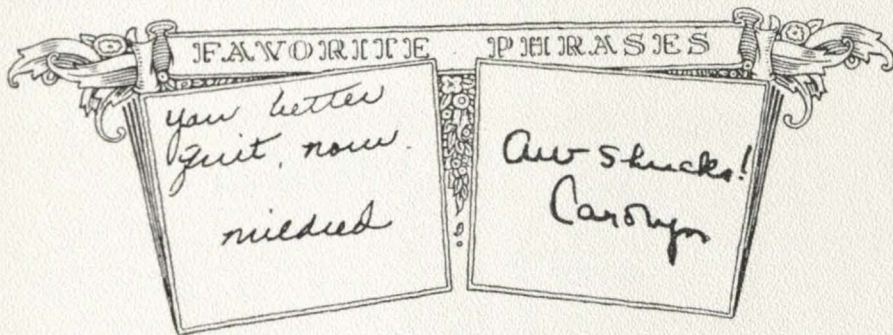 FAVORITE PHRASES
you better
quit, now.
mildred
Aw Shucks!
Carolyn